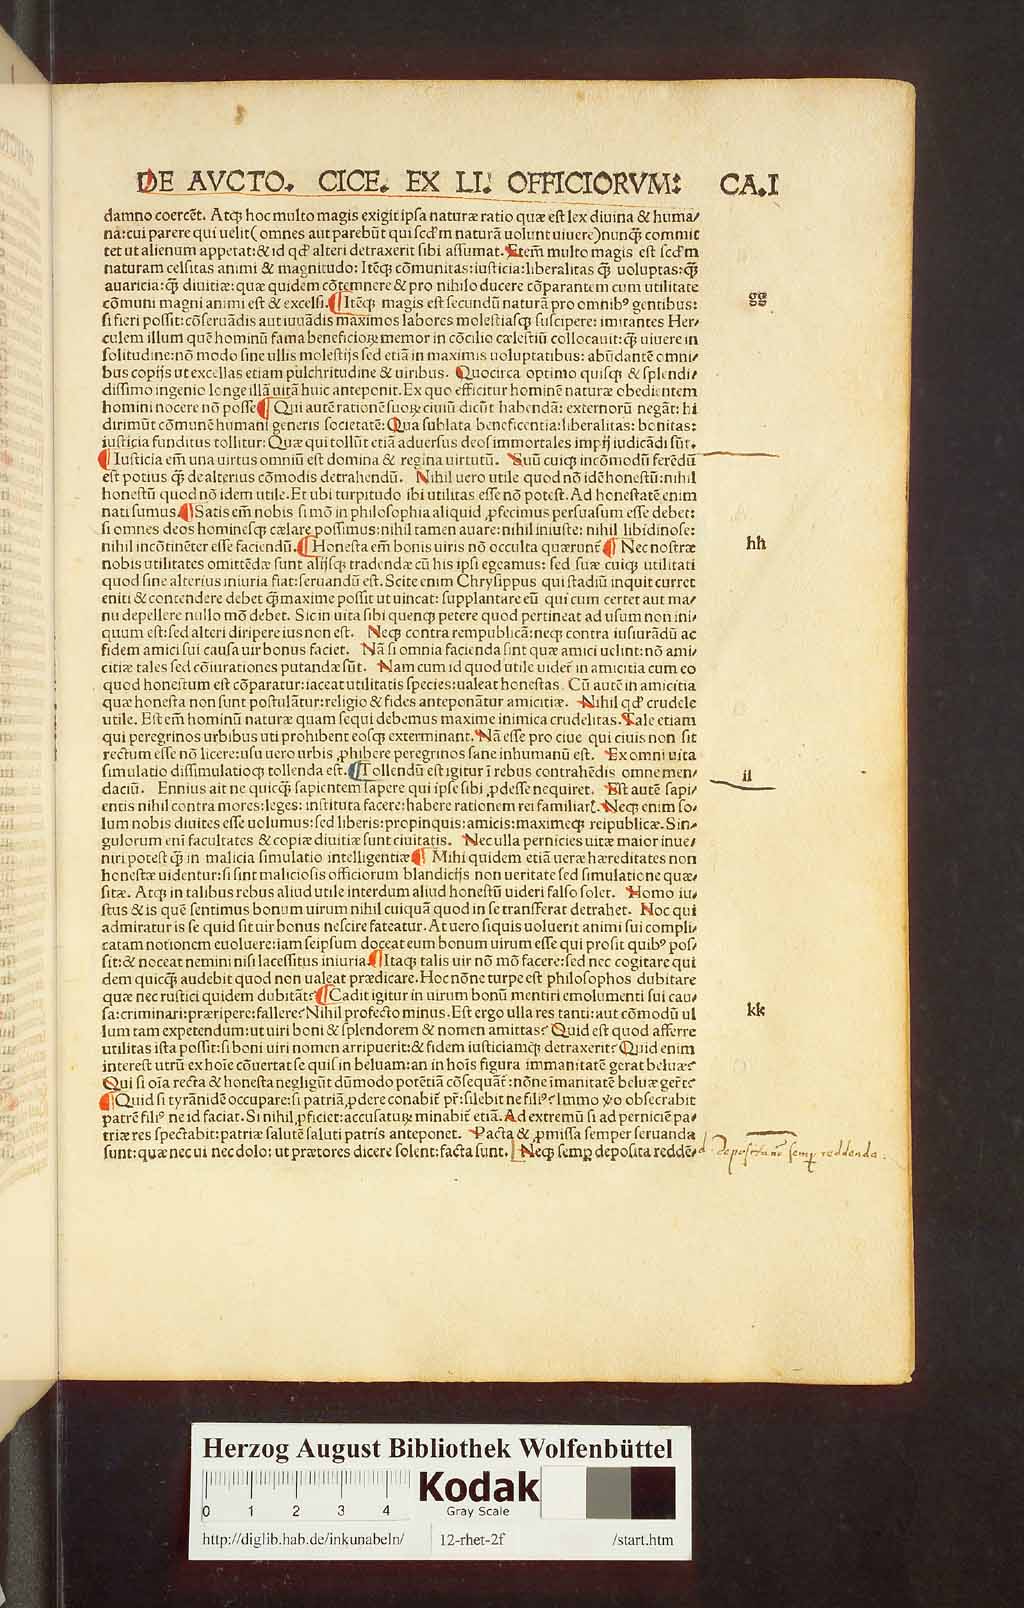 DE AVCTO. CICE. EX LI. OFFICIORVM: CA.I
damno coercēt. Atqꝫ hoc multo magis exigit ipsa naturæ ratio quæ est lex diuina & huma/
na: cui parere qui uelit( omnes aut parebūt qui scdm naturā uolunt uiuere)nunqꝫ commit
tet ut alienum appetat: & id qd' alteri detraxerit sibi assumat. Etem̄ multo magis est scdm
naturam celsitas animi & magnitudo: Itēqꝫ cōmunitas: iusticia: liberalitas qꝫ̄ uoluptas: qꝫ̄
auaricia: qꝫ̄ diuitiæ: quæ quidem cōtemnere & pro nihilo ducere cōparantem cum utilitate
cōmuni magni animi est & excelsi. ¶ Itēqꝫ magis est secundū naturā pro omnibꝰ gentibus:
si fieri possit: cōseruādis aut iuuādis maximos labores molestiasqꝫ suscipere: imitantes Her/
culem illum quē hominū fama beneficioꝝ memor in cōcilio cælestiū collocauit: qꝫ̄ uiuere in
solitudine: nō modo sine ullis molestijs sed etiā in maximis uoluptatibus: abūdantē omni/
bus copijs ut excellas etiam pulchritudine & uiribus. Quocirca optimo quisqꝫ & splendi/
dissimo ingenio longe illā uitā huic anteponit. Ex quo efficitur hominē naturæ obedientem
homini nocere nō posse ¶ Qui autē rationē suoꝝ ciuiū dicūt habendā: externorū negāt: hi
dirimūt cōmunē humani generis societatē: Qua sublata beneficentia: liberalitas: bonitas:
iusticia funditus tollitur: Quæ qui tollūt etiā aduersus deos immortales impij iudicādi sūt.
¶ Iusticia em̄ una uirtus omniū est domina & regina uirtutū. Suū cuiqꝫ incōmodū ferēdū
est potius qꝫ̄ de alterius cōmodis detrahendū. Nihil uero utile quod nō idē honestū: nihil
honestū quod nō idem utile. Et ubi turpitudo ibi utilitas esse nō potest. Ad honestatē enim
nati sumus. ¶ Satis em̄ nobis si mō in philosophia aliquid ꝓfecimus persuasum esse debet:
si omnes deos hominesqꝫ cælare possimus: nihil tamen auare: nihil iniuste: nihil libidinose:
nihil incōtinēter esse faciendū. ¶ Honesta em̄ bonis uiris nō occulta quærunt̄ ¶ Nec nostræ
nobis utilitates omittēdæ sunt alijsqꝫ tradendæ cū his ipsi egeamus: sed suæ cuiqꝫ utilitati
quod sine alterius iniuria fiat: seruandū est. Scite enim Chrysippus qui stadiū inquit curret
eniti & contendere debet qꝫ̄ maxime possit ut uincat: supplantare eū qui cum certet aut ma/
nu depellere nullo mō debet. Sic in uita sibi quenqꝫ petere quod pertineat ad usum non ini/
quum est: sed alteri diripere ius non est. Neqꝫ contra rempublicā: neqꝫ contra iusiurādū ac
fidem amici sui causa uir bonus faciet. Nā si omnia facienda sint quæ amici uelint: nō ami/
citiæ tales sed cōiurationes putandæ sūt. Nam cum id quod utile uidet̄ in amicitia cum eo
quod honestum est cōparatur: iaceat utilitatis species: ualeat honestas. Cū autē in amicitia
quæ honesta non sunt postulātur: religio & fides anteponātur amicitiæ. Nihil qd' crudele
utile. Est em̄ hominū naturæ quam sequi debemus maxime inimica crudelitas. Tale etiam
qui peregrinos urbibus uti prohibent eosqꝫ exterminant. Nā esse pro ciue qui ciuis non sit
rectum esse nō licere: usu uero urbis ꝓhibere peregrinos sane inhumanū est. Ex omni uita
simulatio dissimulatioqꝫ tollenda est. ¶ Tollendū est igitur ī rebus contrahēdis omne men/
daciū. Ennius ait ne quicqꝫ̄ sapientem sapere qui ipse sibi ꝓdesse nequiret. Est autē sapi/
entis nihil contra mores: leges: instituta facere: habere rationem rei familiaṝ. Neqꝫ enim so/
lum nobis diuites esse uolumus: sed liberis: propinquis: amicis: maximeqꝫ reipublicæ. Sin/
gulorum eni facultates & copiæ diuitiæ sunt ciuitatis. Nec ulla pernicies uitæ maior inue/
niri potest qꝫ̄ in malicia simulatio intelligentiæ ¶ Mihi quidem etiā ueræ hæreditates non
honestæ uidentur: si sint maliciosis officiorum blandicijs non ueritate sed simulatione quæ/
sitæ. Atqꝫ in talibus rebus aliud utile interdum aliud honestū uideri falso solet. Homo iu/
stus & is quē sentimus bonum uirum nihil cuiquā quod in se transferat detrahet. Hoc qui
admiratur is se quid sit uir bonus nescire fateatur. At uero siquis uoluerit animi sui compli/
catam notionem euoluere: iam seipsum doceat eum bonum uirum esse qui prosit quibꝰ pos/
sit: & noceat nemini: nisi lacessitus iniuria. ¶ Itaqꝫ talis uir nō mō facere: sed nec cogitare qui
dem quicqꝫ̄ audebit quod non ualeat prædicare. Hoc nōne turpe est philosophos dubitare
quæ nec rustici quidem dubitāt? ¶ Cadit igitur in uirum bonū mentiri emolumenti sui cau/
sa: criminari: præripere: fallere? Nihil profecto minus. Est ergo ulla res tanti: aut cōmodū ul
lum tam expetendum: ut uiri boni & splendorem & nomen amittas? Quid est quod afferre
utilitas ista possit: si boni uiri nomen arripuerit: & fidem iusticiamqꝫ detraxerit? Quid enim
interest utrū ex hoīe cōuertat se quis in beluam: an in hoīs figura immanitatē gerat beluæ?
Qui si oīa recta & honesta negligūt dūmodo potētiā cōsequāt̄: nōne īmanitatē beluæ geṝt?
¶ Quid si tyrānidē occupare: si patriā ꝓdere conabit̄ pr̄: silebit ne filiꝰ? Immo ỽo obsecrabit
patrē filiꝰ ne id faciat. Si nihil ꝓficiet: accusatuꝝ minabit̄ etiā. Ad extremū si ad perniciē pa/
triæ res spectabit: patriæ salutē saluti patris anteponet. Pacta & ꝓmissa semper seruanda
sunt: quæ nec ui nec dolo: ut prætores dicere solent: facta sunt. Neqꝫ semꝑ deposita reddē/
gg
hh
il
kk
semꝑ reddenda.
Herzog August Bibliothek Wolfenbüttel
0 1 2 3 4
Kodak
Gray Scale
http://diglib.hab.de/inkunabeln/ 12-rhet-2f /start.htm